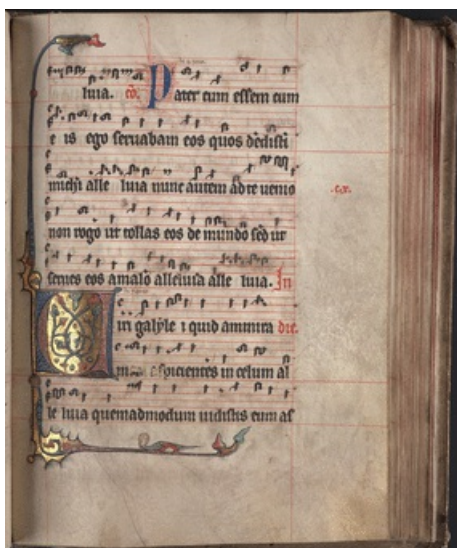 luia. cō. Pater cum essem cum
e is ego servabam eos quos dedisti
michi alle luia nunc autem ad te venio
.c.v.
non rogo ut tollas eos de mundo sed ut
serves eos a malo alleluia alle luia. In
iri galyle i quid ammira die.
mini aspicientes in celum al
le luia quemadmodum vidistis eum as